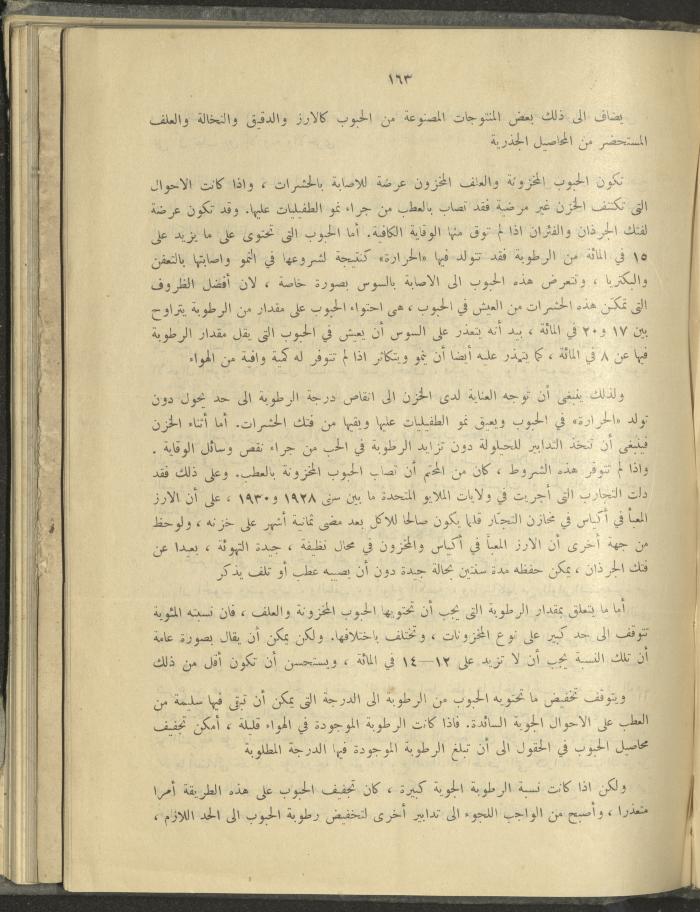 ١٦٣
يضاف الى ذلك بعض المنتوجات المصنوعة من الحبوب كالارز والدقيق والنخالة والعلف
المستحضر من المحاصيل الجذرية
تكون الحبوب المخزونة والعلف المخزون عرضة للاصابة بالحشرات ، واذا كانت الاحوال
التى تكتنف الخزن غير مرضية فقد تصاب بالعطب من جراء نمو الطفيليات عليها. وقد تكون عرضة
لفتك الجرذان والفئران اذا لم توق منها الوقاية الكافية. أما الحبوب التى تحتوى على ما يزيد على
١٥ في المائة من الرطوبة فقد تتولد فيها «الحرارة» كنتيجة لشروعها في النمو واصابتها بالتعفن
والبكتريا ، وتتعرض هذه الحبوب الى الاصابة بالسوس بصورة خاصة ، لان أفضل الظروف
التى تمكن هذه الحشرات من العيش في الحبوب ، هى احتواء الحبوب على مقدار من الرطوبة يتراوح
بين ١٧ و٢٠ في المائة ، بيد أنه يتعذر على السوس أن يعيش في الحبوب التى يقل مقدار الرطوبة
فيها عن ٨ في المائة ، كما يتعذر عليه أيضا أن ينمو ويتكاثر اذا لم تتوفر له كمية وافية من الهواء
ولذلك ينبغى أن توجه العناية لدى الخزن الى انقاص درجة الرطوبة الى حد يحول دون
تولد «الحرارة» في الحبوب ويعيق نمو الطفيليات عليها ويقيها من فتك الحشرات. أما أثناء الخزن
فينبغى أن تتخذ التدابير للحيلولة دون تزايد الرطوبة في الحب من جراء نقص وسائل الوقاية .
واذا لم تتوفر هذه الشروط ، كان من المحتم أن تصاب الحبوب المخزونة بالعطب. وعلى ذلك فقد
دلت التجارب التى أجريت في ولايات الملايو المتحدة ما بين سنى ١٩٢٨ و١٩٣٠ ، على أن الارز
المعبأ في أكياس في مخازن التجار قلما يكون صالحا للاكل بعد مضى ثمانية أشهر على خزنه ، ولوحظ
من جهة أخرى أن الارز المعبأ في أكياس والمخزون في محال نظيفة ، جيدة التهوئة ، بعيدا عن
فتك الجرذان ، يمكن حفظه مدة سنتين بحالة جيدة دون أن يصيبه عطب أو تلف يذكر
أما ما يتعلق بمقدار الرطوبة التى يجب أن تحتويها الحبوب المخزونة والعلف ، فان نسبته المئوية
تتوقف الى حد كبير على نوع المخزونات ، وتختلف باختلافها. ولكن يمكن أن يقال بصورة عامة
أن تلك النسبة يجب أن لا تزيد على ١٢—١٤ في المائة ، ويستحسن أن تكون أقل من ذلك
ويتوقف تخفيض ما تحتويه الحبوب من الرطوبة الى الدرجة التى يمكن أن تبقى فيها سليمة من
العطب على الاحوال الجوية السائدة. فاذا كانت الرطوبة الموجودة في الهواء قليلة ، أمكن تجفيف
محاصيل الحبوب في الحقول الى أن تبلغ الرطوبة الموجودة فيها الدرجة المطلوبة
ولكن اذا كانت نسبة الرطوبة الجوية كبيرة ، كان تجفيف الحبوب على هذه الطريقة أمرا
متعذرا ، وأصبح من الواجب اللجوء الى تدابير أخرى لتخفيض رطوبة الحبوب الى الحد اللازم ،